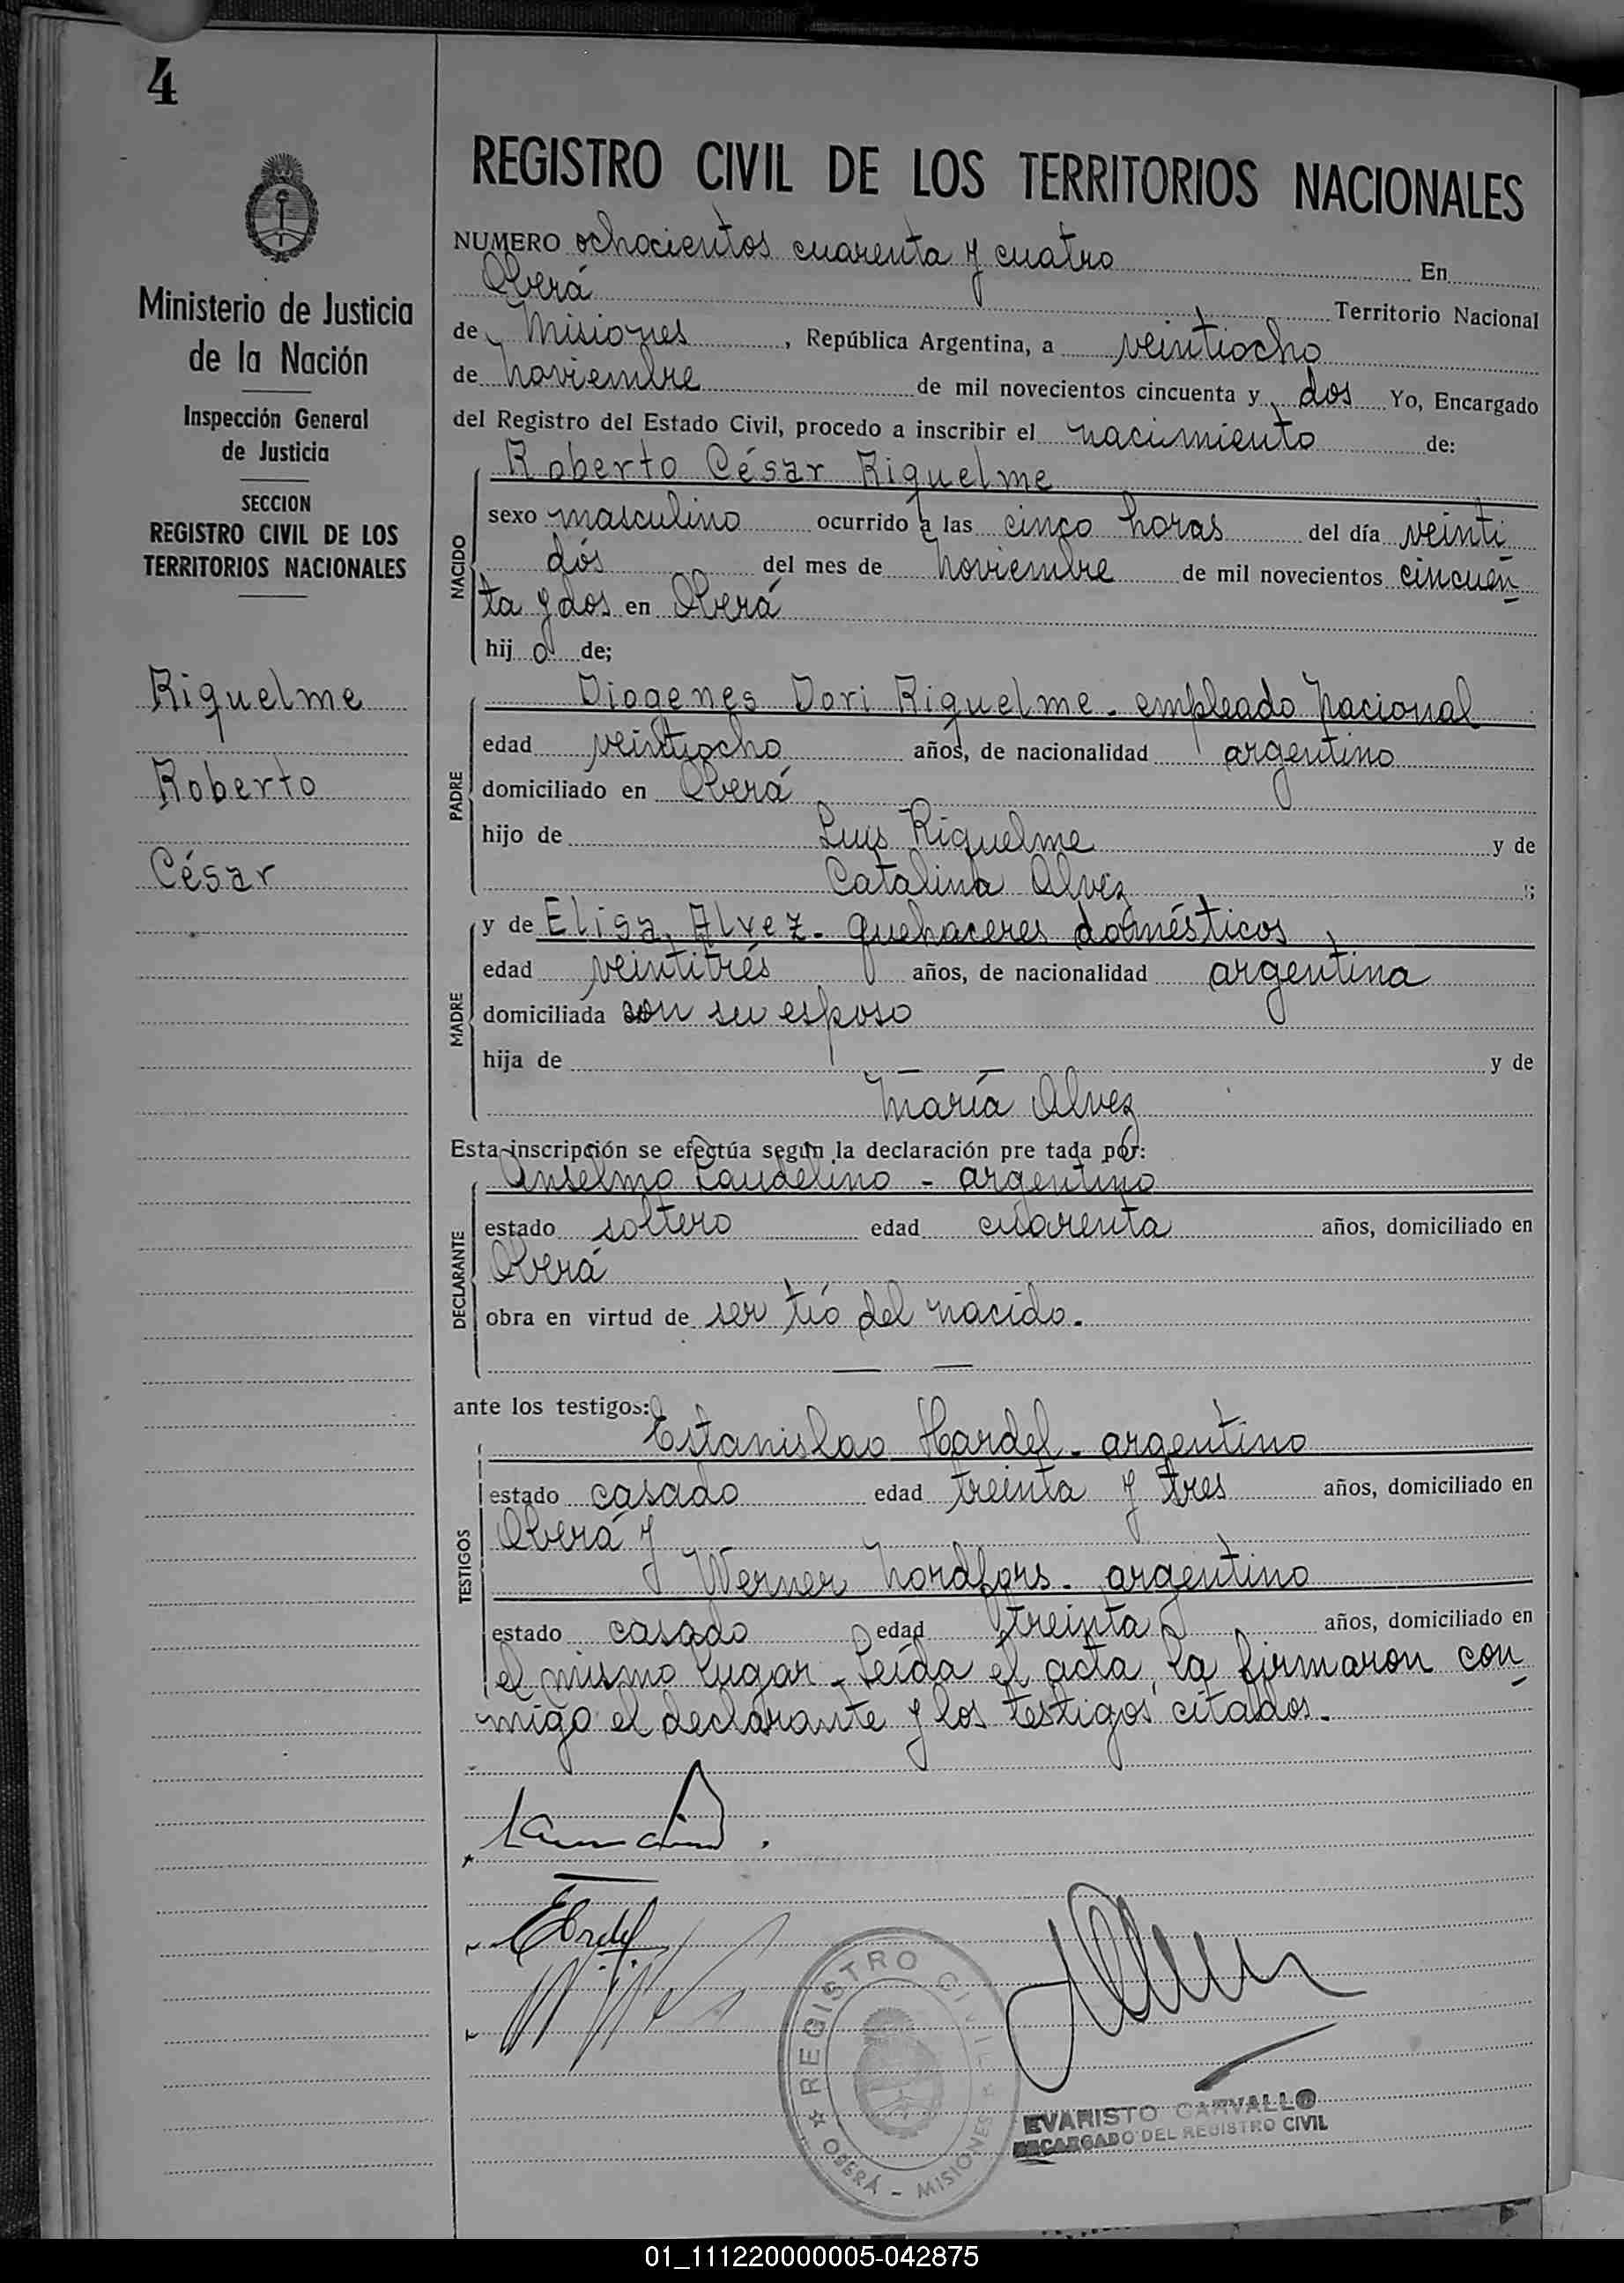 4
REGISTRO CIVIL DE LOS TERRITORIOS NACIONALES
Ministerio de Justicia
de la Nación
Inspección General
de Justicia
SECCION
REGISTRO CIVIL DE LOS
TERRITORIOS NACIONALES
Riquelme
Roberto
César
NUMERO ochocientos cuarenta y cuatro En
Oberá Territorio Nacional
de Misiones, República Argentina, a veintiocho
de noviembre de mil novecientos cincuenta y dos Yo, Encargado
del Registro del Estado Civil, procedo a inscribir el nacimiento de:
NACIDO
Roberto César Riquelme
sexo masculino ocurrido a las cinco horas del día veinti
dós del mes de noviembre de mil novecientos cincuen-
ta y dos en Oberá
hij o de;
PADRE
Diogenes Dori Riquelme - empleado nacional
edad veintiocho años, de nacionalidad argentino
domiciliado en Oberá
hijo de Luis Riquelme y de
Catalina Alvez ;
MADRE
y de Elisa Alvez - quehaceres domésticos
edad veintitrés años, de nacionalidad argentina
domiciliada con su esposo
hija de — — y de
María Alvez
Esta inscripción se efectúa según la declaración pre tada por:
DECLARANTE
Anselmo Laudelino - argentino
estado soltero edad cuarenta años, domiciliado en
Oberá
obra en virtud de ser tío del nacido.
— —
ante los testigos:
TESTIGOS
Estanislao Hardel - argentino
estado casado edad treinta y tres años, domiciliado en
Oberá y
Werner Nordfors - argentino
estado casado edad treinta años, domiciliado en
el mismo lugar - Leída el acta, la firmaron con-
migo el declarante y los testigos citados.
REGISTRO CIVIL
OBERÁ - MISIONES
EVARISTO CARVALLO
ENCARGADO DEL REGISTRO CIVIL
01_111220000005-042875